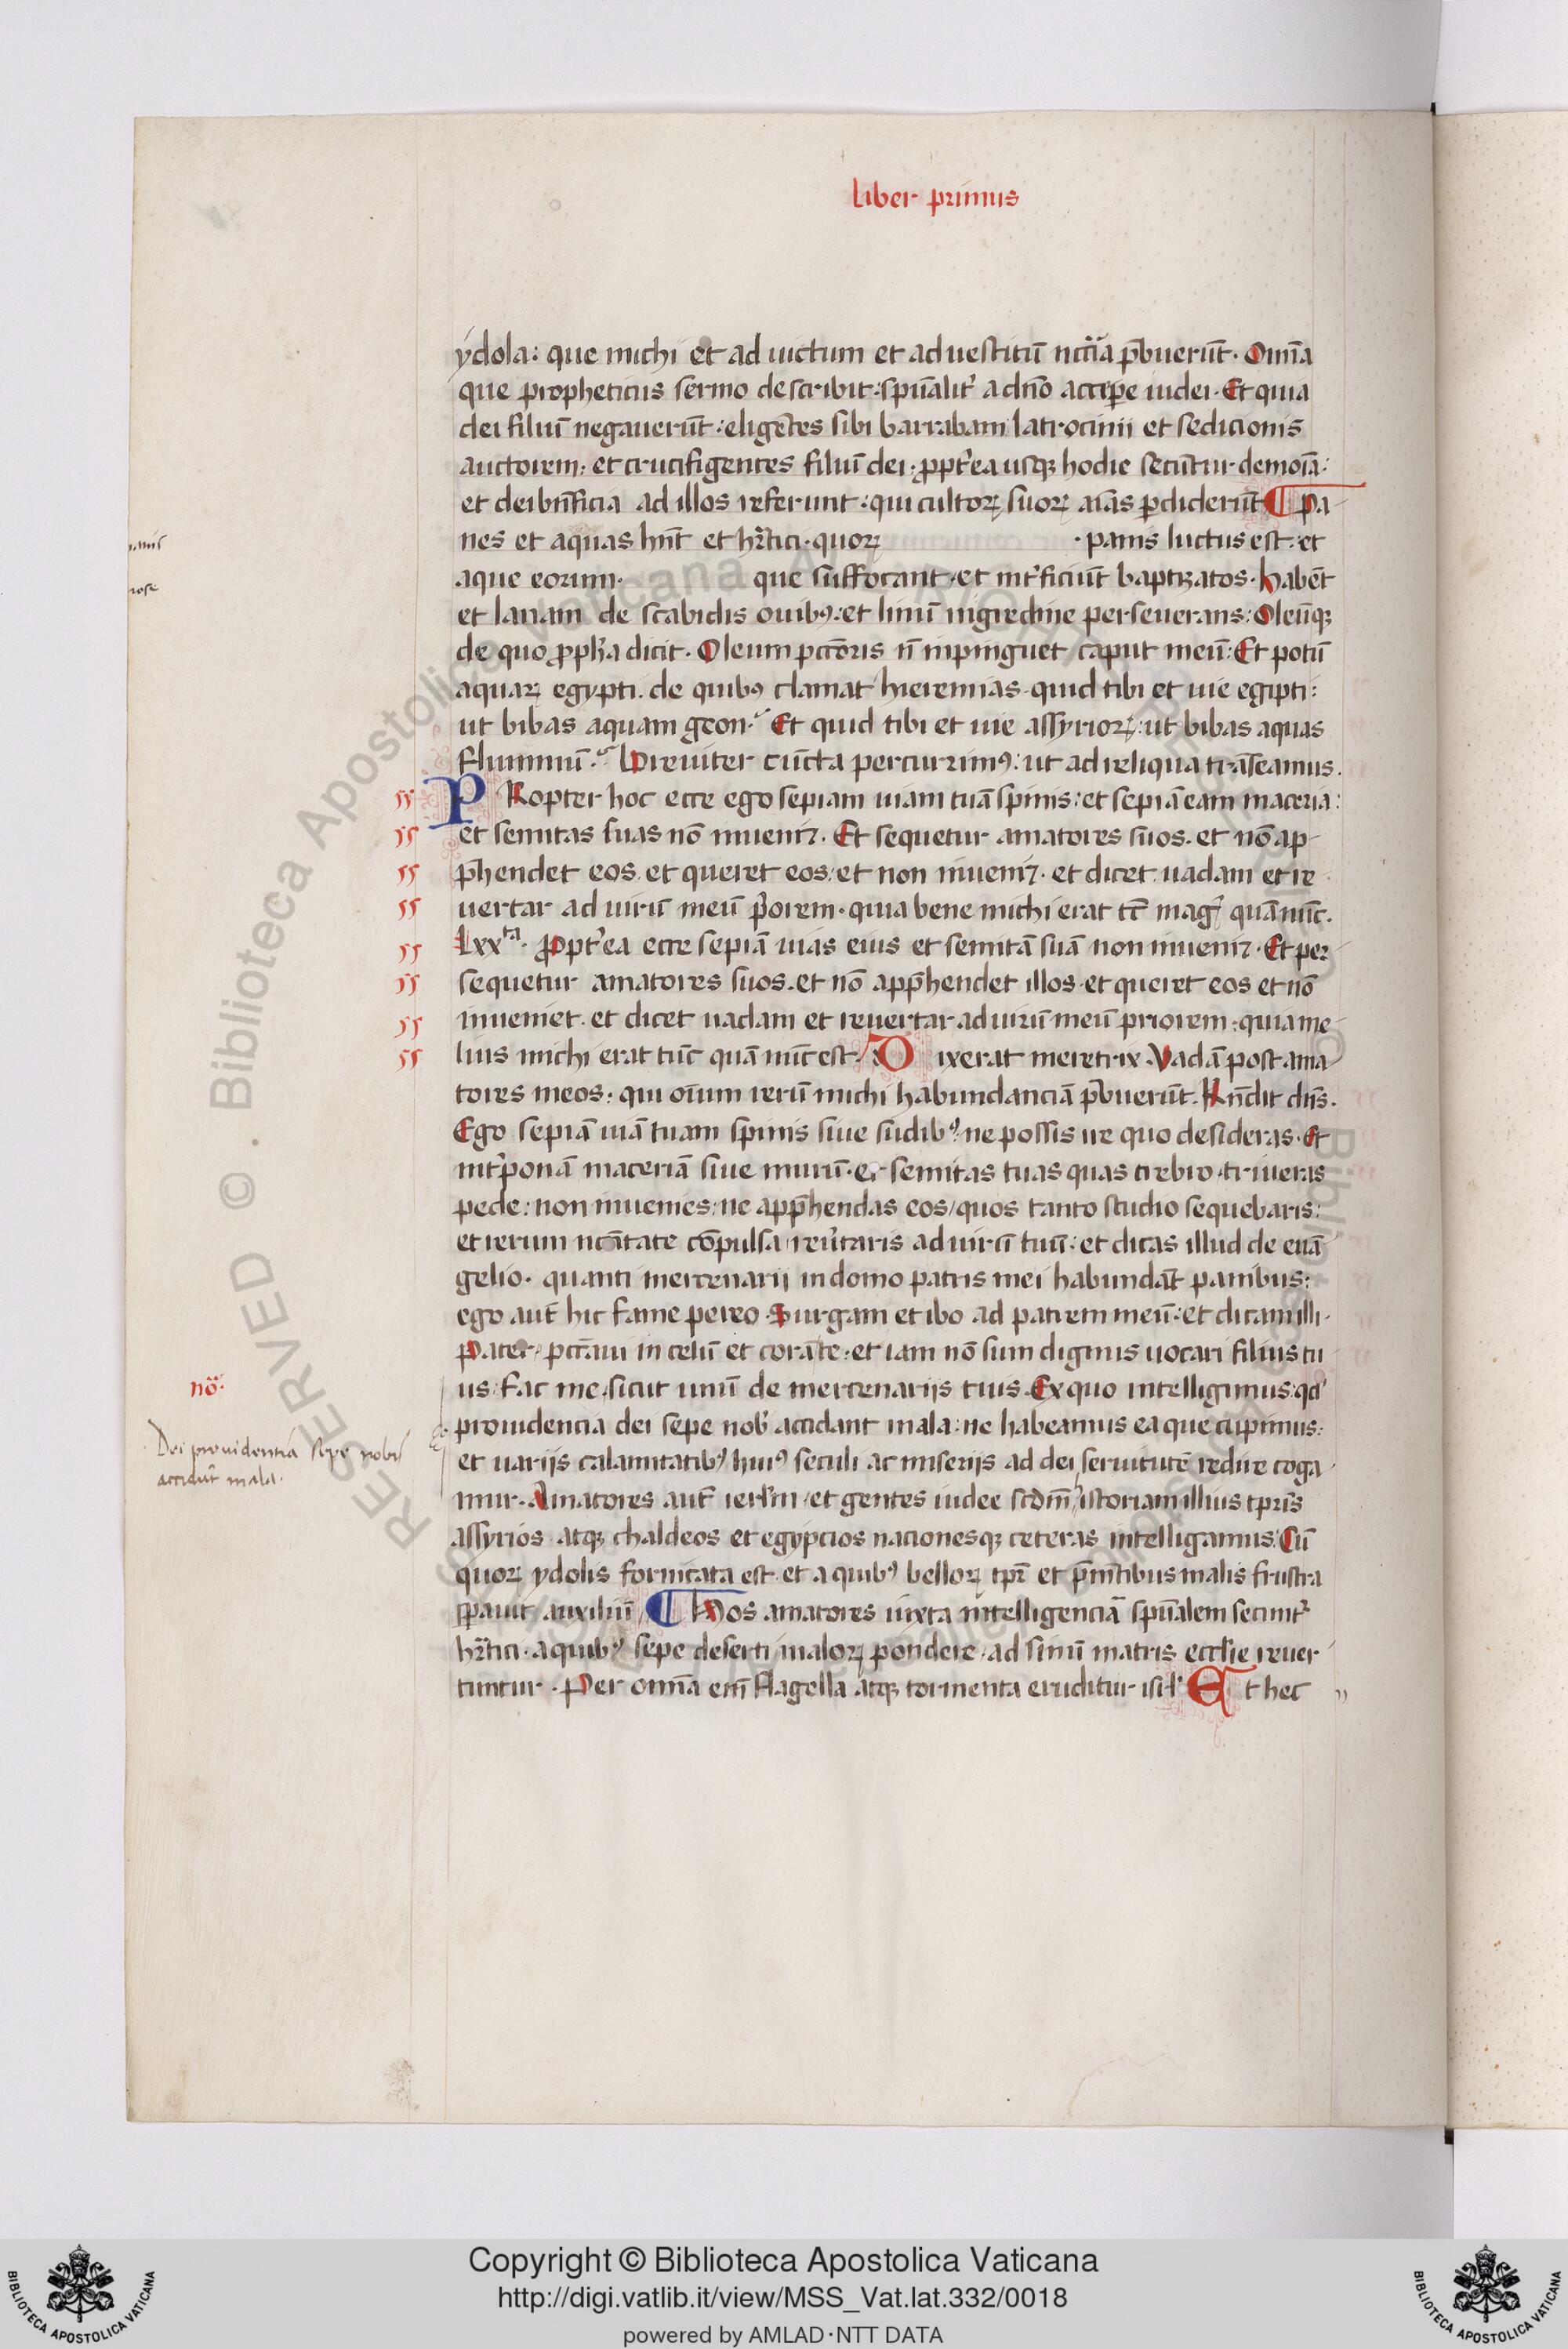 liber primus
ydola: que michi et ad uictum et ad uestitū nccīa p̄buerūt. Omīa
que propheticus sermo describit: spūalit̓ a dn̄o accepere iudei. Et quia
dei filiū negauerūt: eligētes sibi barrabam latrocinii et sedicionis
auctorem: et crucifigentes filiū dei: ꝓpt̓ea usqꝫ hodie secūtur demoīa:
et dei bn̄ficia ad illos referunt: qui cultoꝝ suoꝝ aīas ꝑdiderūt ¶ Pa-
nes et aquas hn̄t et hr̄tici. quoꝝ . panis luctus est: et
aque eorum. que suffocant. et int̓ficiūt baptizatos. Habēt
et lanam de scabidis ouibꝰ: et linū nigredine perseuerans: Oleūqꝫ
de quo ꝓph̄a dicit. Oleum pctōris n̄ inpinguet caput meū: Et potū
aquaꝝ egypti. de quibꝰ clamat hieremias. quid tibi et uie egipti:
ut bibas aquam geon. Et quid tibi et uie assyrioꝝ: ut bibas aquas
fluminū. Breuiter cūcta percurrimꝰ: ut ad reliqua trāseamus.
PRopter hoc ecce ego sepiam uiam tuā spinis: et sepiā eam maceria:
et semitas suas nō inueniꝫ. Et sequetur amatores suos. et nō ap-
p̄hendet eos. et queret eos: et non inueniꝫ. et dicet uadam et re
uertar ad uirū meū p̓orem. quia bene michi erat tc̄ mag̓ quā nūc.
Lxxᵗᵃ. Ꝓpt̓ea ecce sepiā uias eius et semitā suā non inueniꝫ. Et per-
sequetur amatores suos. et nō app̄hendet illos. et queret eos et nō
inueniet. et dicet uadam et reuertar ad uirū meū priorem: quia me-
lius michi erat tūc quā nūc est. Dixerat meretrix. Vadā post ama-
tores meos: qui oīum rerū michi habundanciā p̄buerūt. Rn̄dit dn̄s.
Ego sepiā uiā tuam spinis siue sudibꝰ: ne possis ire quo desideras. Et
int̓ponā maceriā siue murū. et semitas tuas quas crebro triueras
pede: non inuenies: ne app̄hendas eos/ quos tanto studio sequebaris:
et rerum ncc̄itate cōpulsa reu̓taris ad uirū tuū: et dicas illud de euā-
gelio. quanti mercenarij in domo patris mei habundāt panibus:
ego aut̄ hic fame pereo. Surgam et ibo ad patrem meū: et dicam illi.
Pater pctāui in celū et corā te: et iam nō sum dignus uocari filius tu
us: fac me sicut unū de mercenarijs tuis. Ex quo intelligimus: qd̓
prouidencia dei sepe nob̓ accidant mala: ne habeamus ea que cupimus:
et uarijs calamitatibꝰ huiꝰ seculi ac miserijs ad dei seruitutē redire coga-
mur. Amatores aut̄ ierl̄m et gentes iudee scdm̄ istoriam illius tp̄ris
assyrios atqꝫ chaldeos et egypcios nacionesqꝫ ceteras intelligamus: Cū
quoꝝ ydolis fornicata est. et a quibꝰ belloꝝ tp̄r̄ et p̄mētibus malis frustra
sꝑauit auxiliū ¶ Hos amatores iuxta intelligenciā spūalem secunt̓
hr̄tici. a quibꝰ sepe deserti/ maloꝝ pondere. ad sinū matris eccl̄ie reuer-
tuntur. Per omīa em̄ flagella atqꝫ tormenta eruditur isrl̓ Et hec
nō:
Dei prouidentia sepe nobis
accidūt mala.
Copyright © Biblioteca Apostolica Vaticana
http://digi.vatlib.it/view/MSS_Vat.lat.332/0018
powered by AMLAD·NTT DATA